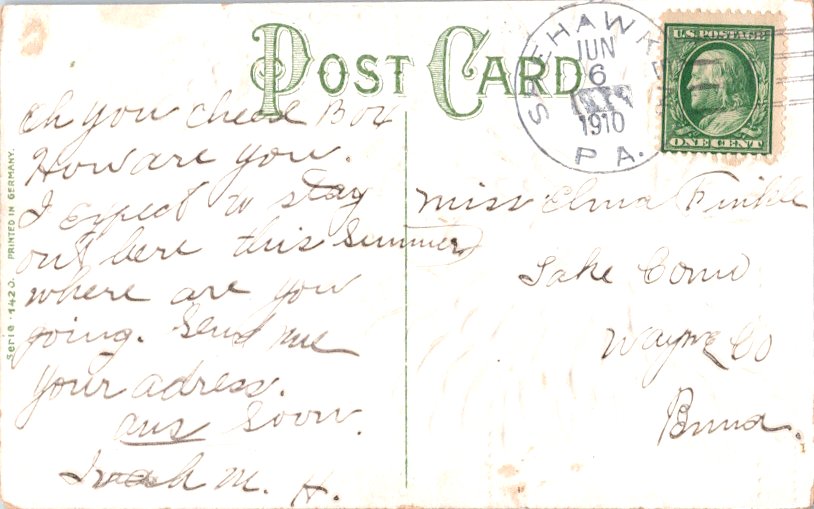 POST CARD
SHEHAWKEN
JUN
6
1910
PA.
U.S. POSTAGE
ONE CENT
oh you cheese Box
How are you.
I expect to stay
out here this Summer
where are you
going. Send me
your adress.
ans Soon.
M. H.
Miss Elma Finkle
Lake Como
Wayne Co
Penna.
Serie 1420. PRINTED IN GERMANY.